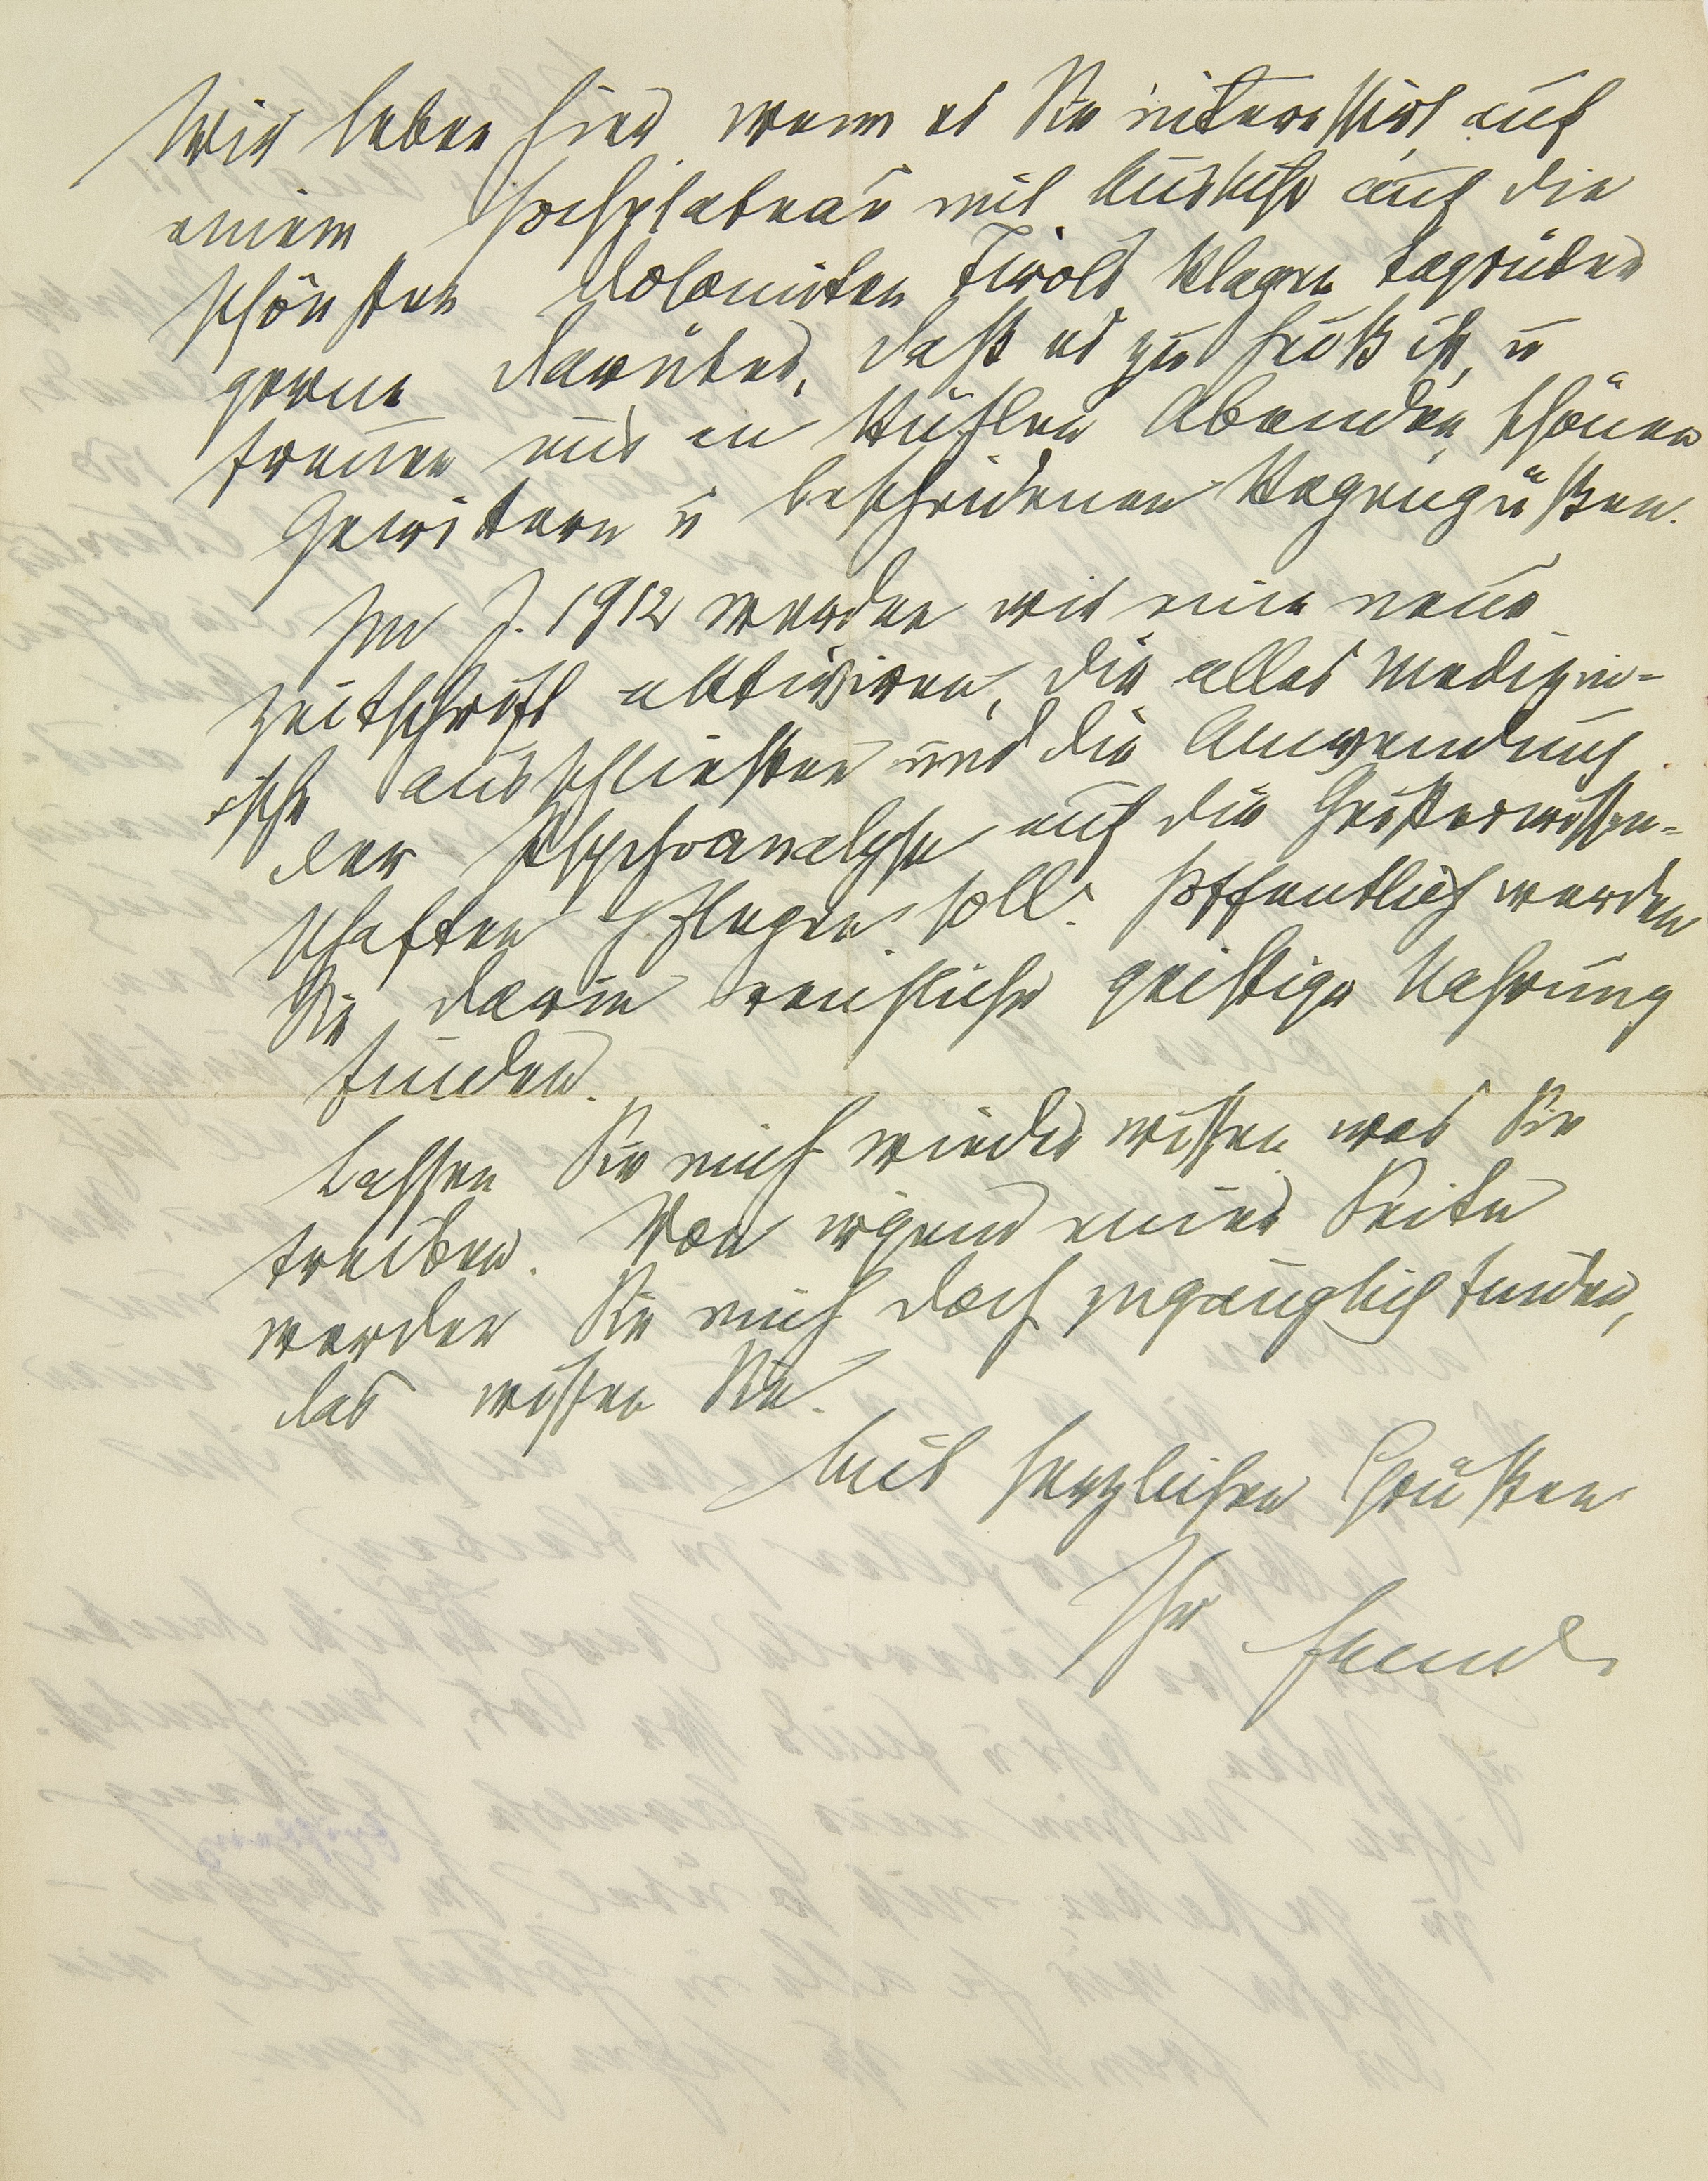 Wir leben hier wenn es Sie interessirt, auf
einem Hochplateau mit Aussicht auf die
schönsten Dolomiten Tirols klagen tagsüber
gerne darüber, daß es zu heiß ist, u
freuen uns an kühlen Abenden, schönen
Gewittern u bescheidenen Regengüßen.
Im J. 1912 werden wir eine neue
Zeitschrift aktiviren, die alles Medizin-
ische ausschließen und die Anwendung
der Psychoanalyse auf die Geisteswissen-
schaften pflegen soll. Hoffentlich werden
Sie darin reichliche geistige Nahrung
finden.
Lassen Sie mich wieder wissen was Sie
treiben. Von irgend einer Seite
werden Sie mich doch zugänglich finden,
das wissen Sie.
Mit herzlichen Grüßen
Ihr Freud